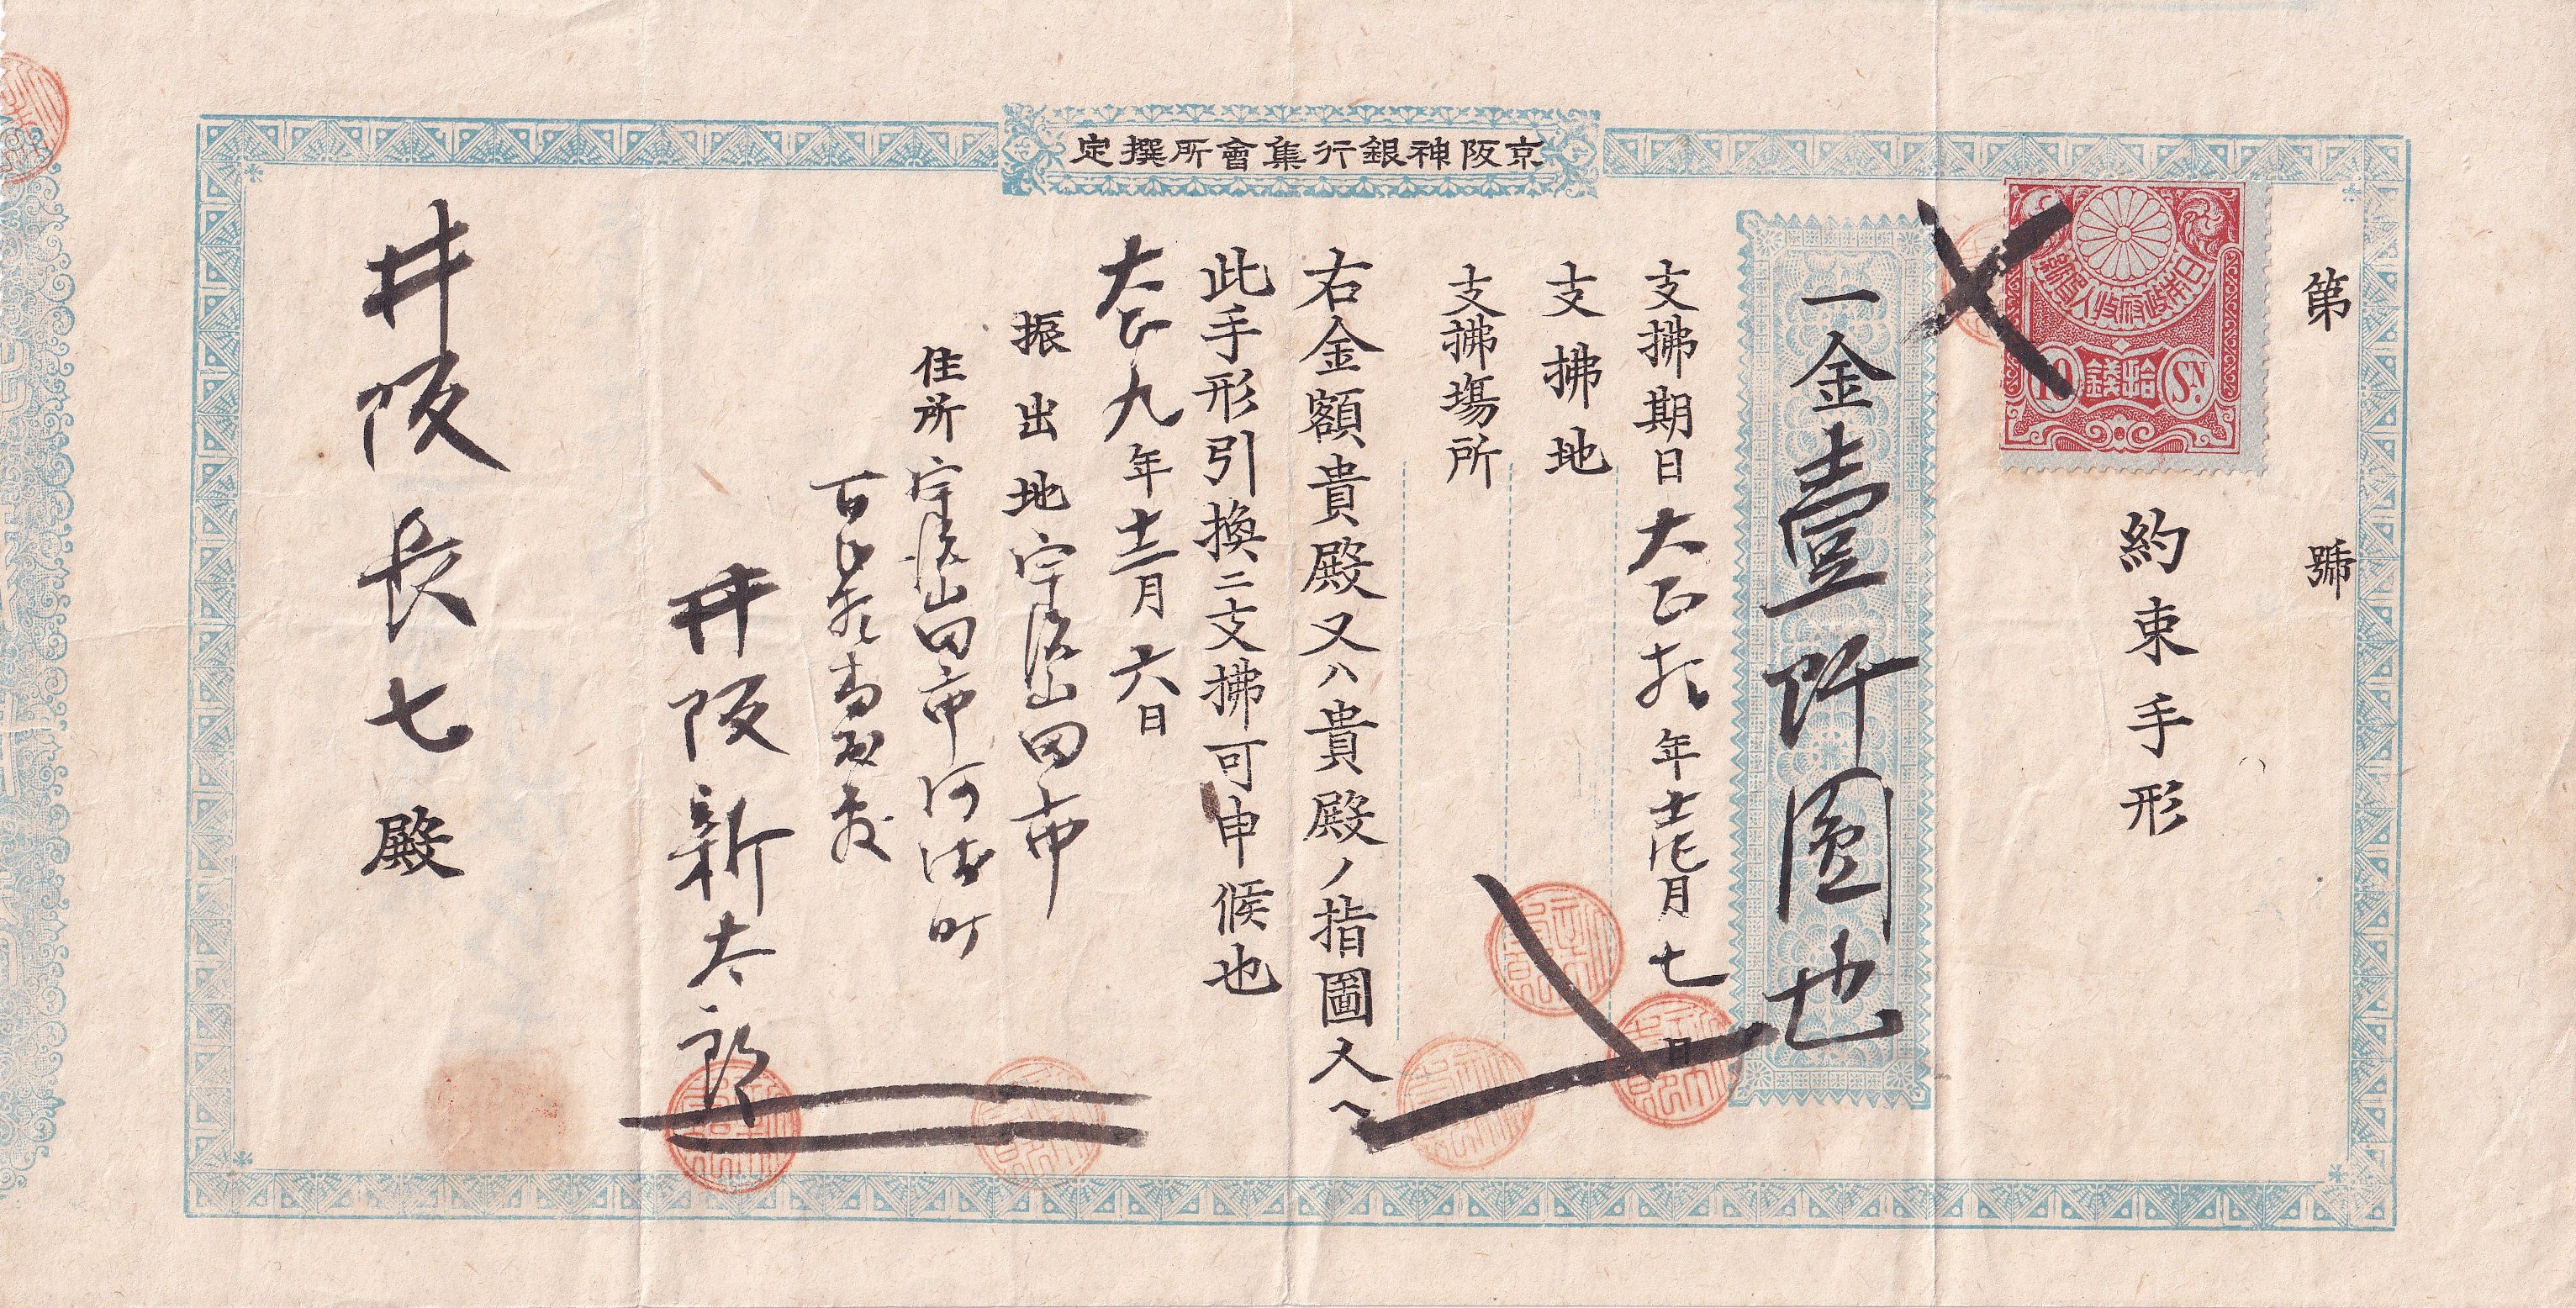 京阪神銀行集會所撰定
第 號
約束手形
日本政府収入印紙
10 拾錢 SN.
一金壹阡圓也
支拂期日大正拾年十二月七日
支拂地
支拂塲所
右金額貴殿又ハ貴殿ノ指圖人ヘ
此手形引換ニ支拂可申候也
大正九年十二月六日
振出地宇治山田市
住所宇治山田市河崎町
井阪新太郎
井阪長七殿